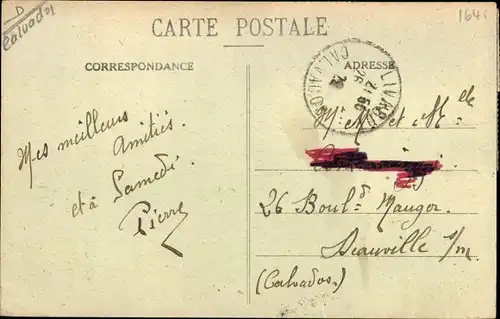 D
Calvados
1641
CARTE POSTALE
CORRESPONDANCE
ADRESSE
LIVAROT
CALVADOS
Mes meilleurs
Amitiés.
et à Samedi.
Pierre
Mr Mme et Melle
26 Boul.d Mauger
Deauville s/m
(Calvados.)